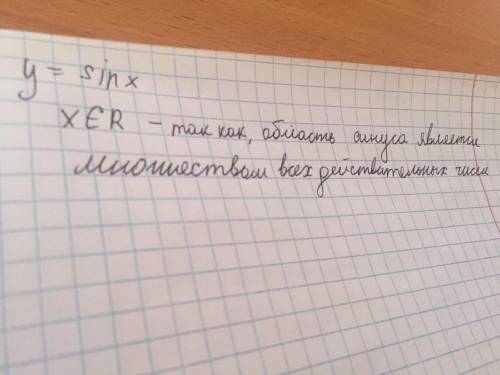 y = sinx
x∈R – так как, область синуса является
множеством всех действительных чисел